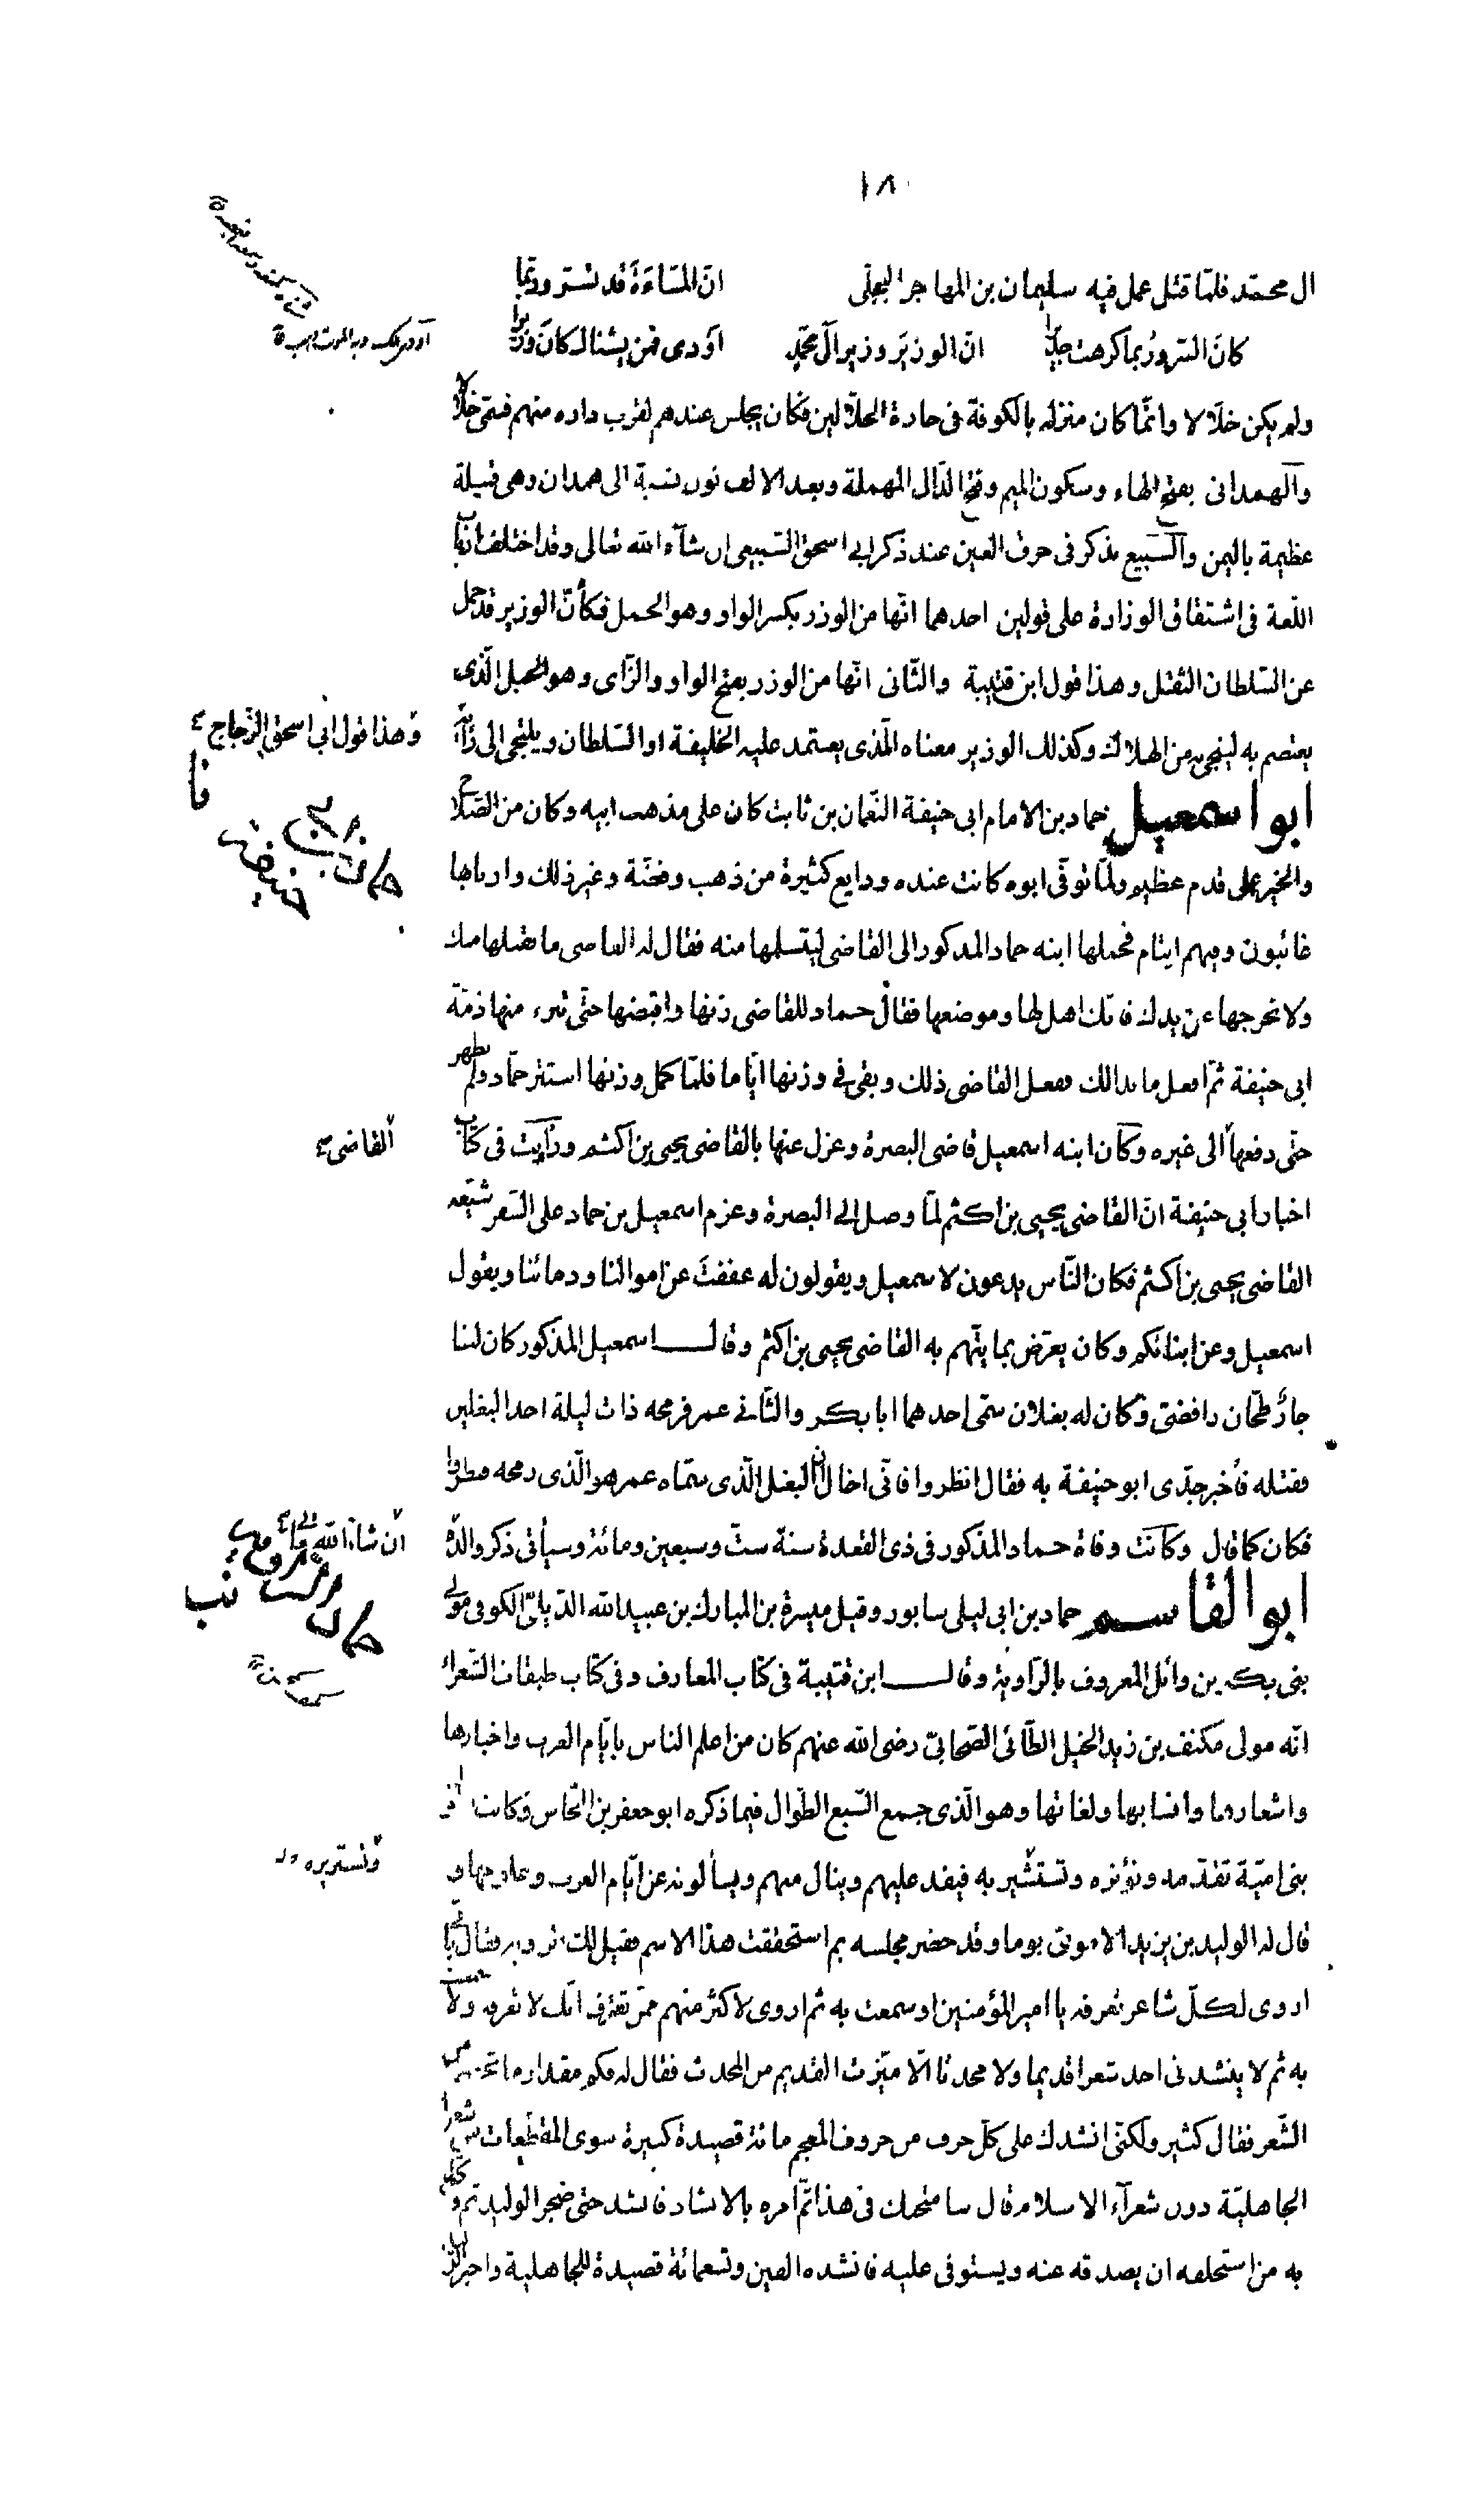 ١٨٠
ال محمّد فلمّا قتل عمل فيه سليمان بن المهاجر البجلى انّ المسَاءَةَ قد تسُرّ وربّما
كانَ السّرورُ بما كرهت جديرا انّ الوزيَر وزير آل محمّدٍ اوَدى فمن يشناك كانَ وزيرا
ولم يكن خلّالا وانّما كان منزله بالكوفة فى حارة الخلّالين فكان يجلس عندهم لقرب داره منهم فسمّى خلّالا
والهمدانى بفتح الهاء وسكون الميم وفتح الدّال المهملة وبعد الالف نون نسبة الى همدان وهى قبيلة
عظيمة باليمن والسّبيع يذكر فى حرف العين عند ذكر ابى اسحق السّبيعى ان شآء الله تعالى وقد اختلف ارباب
اللّغة فى اشتقاق الوزارة على قولين احدهما انّها من الوزر بكسر الواو وهو الحمل فكأنّ الوزير قد حمل
عن السّلطان الثقل وهذا قول ابن قتيبة والثّانى انّها من الوزر بفتح الواو والزّاى وهو الجبل الّذى
يعتصم به لينجى به من الهلاك وكذلك الوزير معناه الّذى يعتمد عليه الخليفة او السّلطان ويلتجى الى رأيه
وهذا قول ابى اسحق الزّجاج
ابو اسمعيل حماد بن الامام ابى حنيفة النّعمان بن ثابت كان على مذهب ابيه وكان من الصّلاح
والخير على قدم عظيم ولمّا توفّى ابوه كانت عنده ودايع كثيرة من ذهب وفضّة وغير ذلك واربابها
غائبون وفيهم ايتام فحملها ابنه حماد المذكور الى القاضى ليتسلمها منه فقال له القاضى ما نقبلها منك
ولا نخرجها عن يدك فانك اهل لها وموضعها فقال حماد للقاضى زنها واقبضها حتّى تبرء منها ذمّة
ابى حنيفة ثمّ افعل ما بدالك ففعل القاضى ذلك وبقى فى وزنها ايّاما فلمّا كمل وزنها استتر حمّاد ولم يظهر
حتّى دفعها الى غيره وكان ابنه اسمعيل قاضى البصرة وعزل عنها بالقاضى يحيى بن اكثم ورأيت فى كتاب
القاضى
اخبار ابى حنيفة انّ القاضى يحيى بن اكثم لمّا وصل الى البصرة وعزم اسمعيل بن حماد على السّفر شيّعه
القاضى يحيى بن اكثم فكان النّاس يدعون لاسمعيل ويقولون له عففتَ عن اموالنا ودمائنا ويقول
اسمعيل وعن ابنائكم وكان يعرّض بما يتّهم به القاضى يحيى بن اكثم وقال اسمعيل المذكور كان لنا
جارٌ طحّان رافضىّ وكان له بغلان سمّى احدهما ابا بكر والثّانى عمر فرمحه ذات ليلة احد البغلين
فقتله فأخبر جدّى ابو حنيفة به فقال انظروا فانّى اخال ان البغل الّذى سمّاه عمر هو الّذى رمحه فنظروا
فكان كما قال وكانت وفاة حماد المذكور فى ذى القعدة سنة ستّ وسبعين ومائة وسيأتى ذكر والده
ان شاء الله تعالى
ابو القاسم حماد بن ابى ليلى سابور وقيل ميسرة بن المبارك بن عبيد الله الدّيلمىّ الكوفى مولى
بنى بكر بن وائل المعروف بالرّاوية وقال ابن قتيبة فى كتاب المعارف وفى كتاب طبقات الشّعراء
انّه مولى مكنف بن زيد الخيل الطّائى الصّحابىّ رضى الله عنهم كان من اعلم الناس بايّام العرب واخبارها
واشعارها وانسابها ولغاتها وهو الّذى جمع السّبع الطّوال فيما ذكره ابو جعفر بن النّحاس وكانت
بنى اميّة تقدّمه وتؤثره وتستشير به فيفد عليهم وينال منهم ويسألونه عن ايّام العرب وعلومها و
وتستزيره
قال له الوليد بن يزيد الاموىّ يوما وقد حضر مجلسه بم استحققت هذا الاسم فقيل لك الراوية فقال بأنّى
اروى لكلّ شاعر تعرفه يا امير المؤمنين او سمعت به ثم اروى لاكثر منهم ممّن تعترف انّك لا تعرفه ولا سمعت
به ثم لا ينشدنى احد شعرا قديما ولا محدثا الّا ميّزت القديم من المحدث فقال له فكم مقدار ما تحفظ من
الشّعر فقال كثير ولكنّى انشدك على كلّ حرف من حروف المعجم مائة قصيدة كبيرة سوى المقطّعات من شعر
الجاهليّة دون شعرآء الاسلام قال سامتحنك فى هذا ثمّ امره بالانشاد فانشد حتى ضجر الوليد ثم وكّل
به من استحلفه ان يصدقه عنه ويستوفى عليه فانشده الفين وتسعمائة قصيدة للجاهلية واخبر